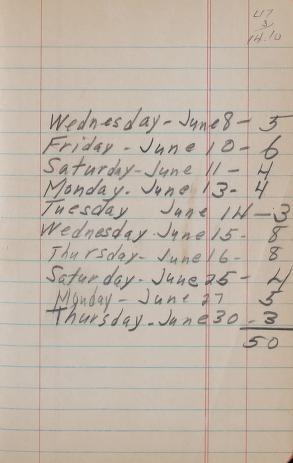 47
3
14.10
Wednesday - June 8 - 5
Friday - June 10 - 6
Saturday - June 11 - 4
Monday - June 13 - 4
Tuesday June 14 - 3
Wednesday - June 15 - 8
Thursday - June 16 - 8
Saturday - June 25 - 4
Monday - June 27 5
Thursday - June 30 - 3
50